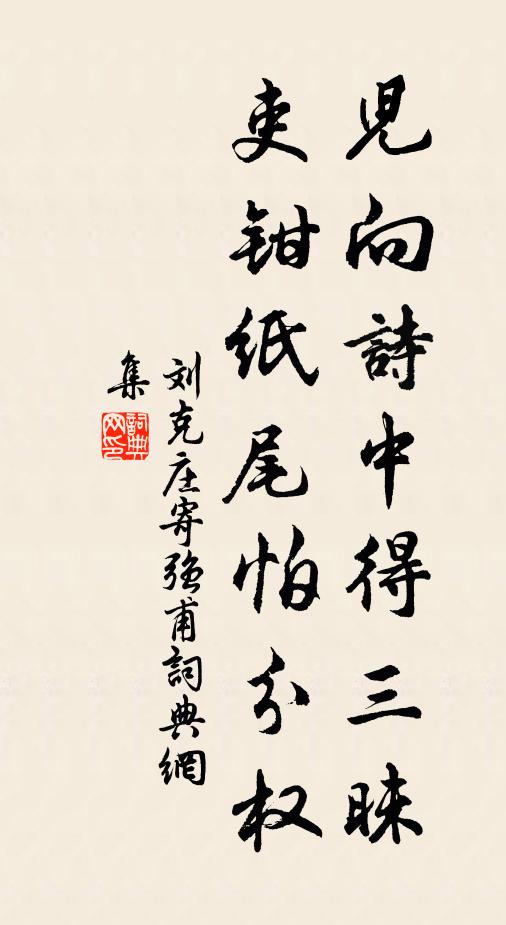 児向詩中得三昧
吏鉗紙尾怕分权
刘克庄寄强甫詞典網
集
詞典
网印